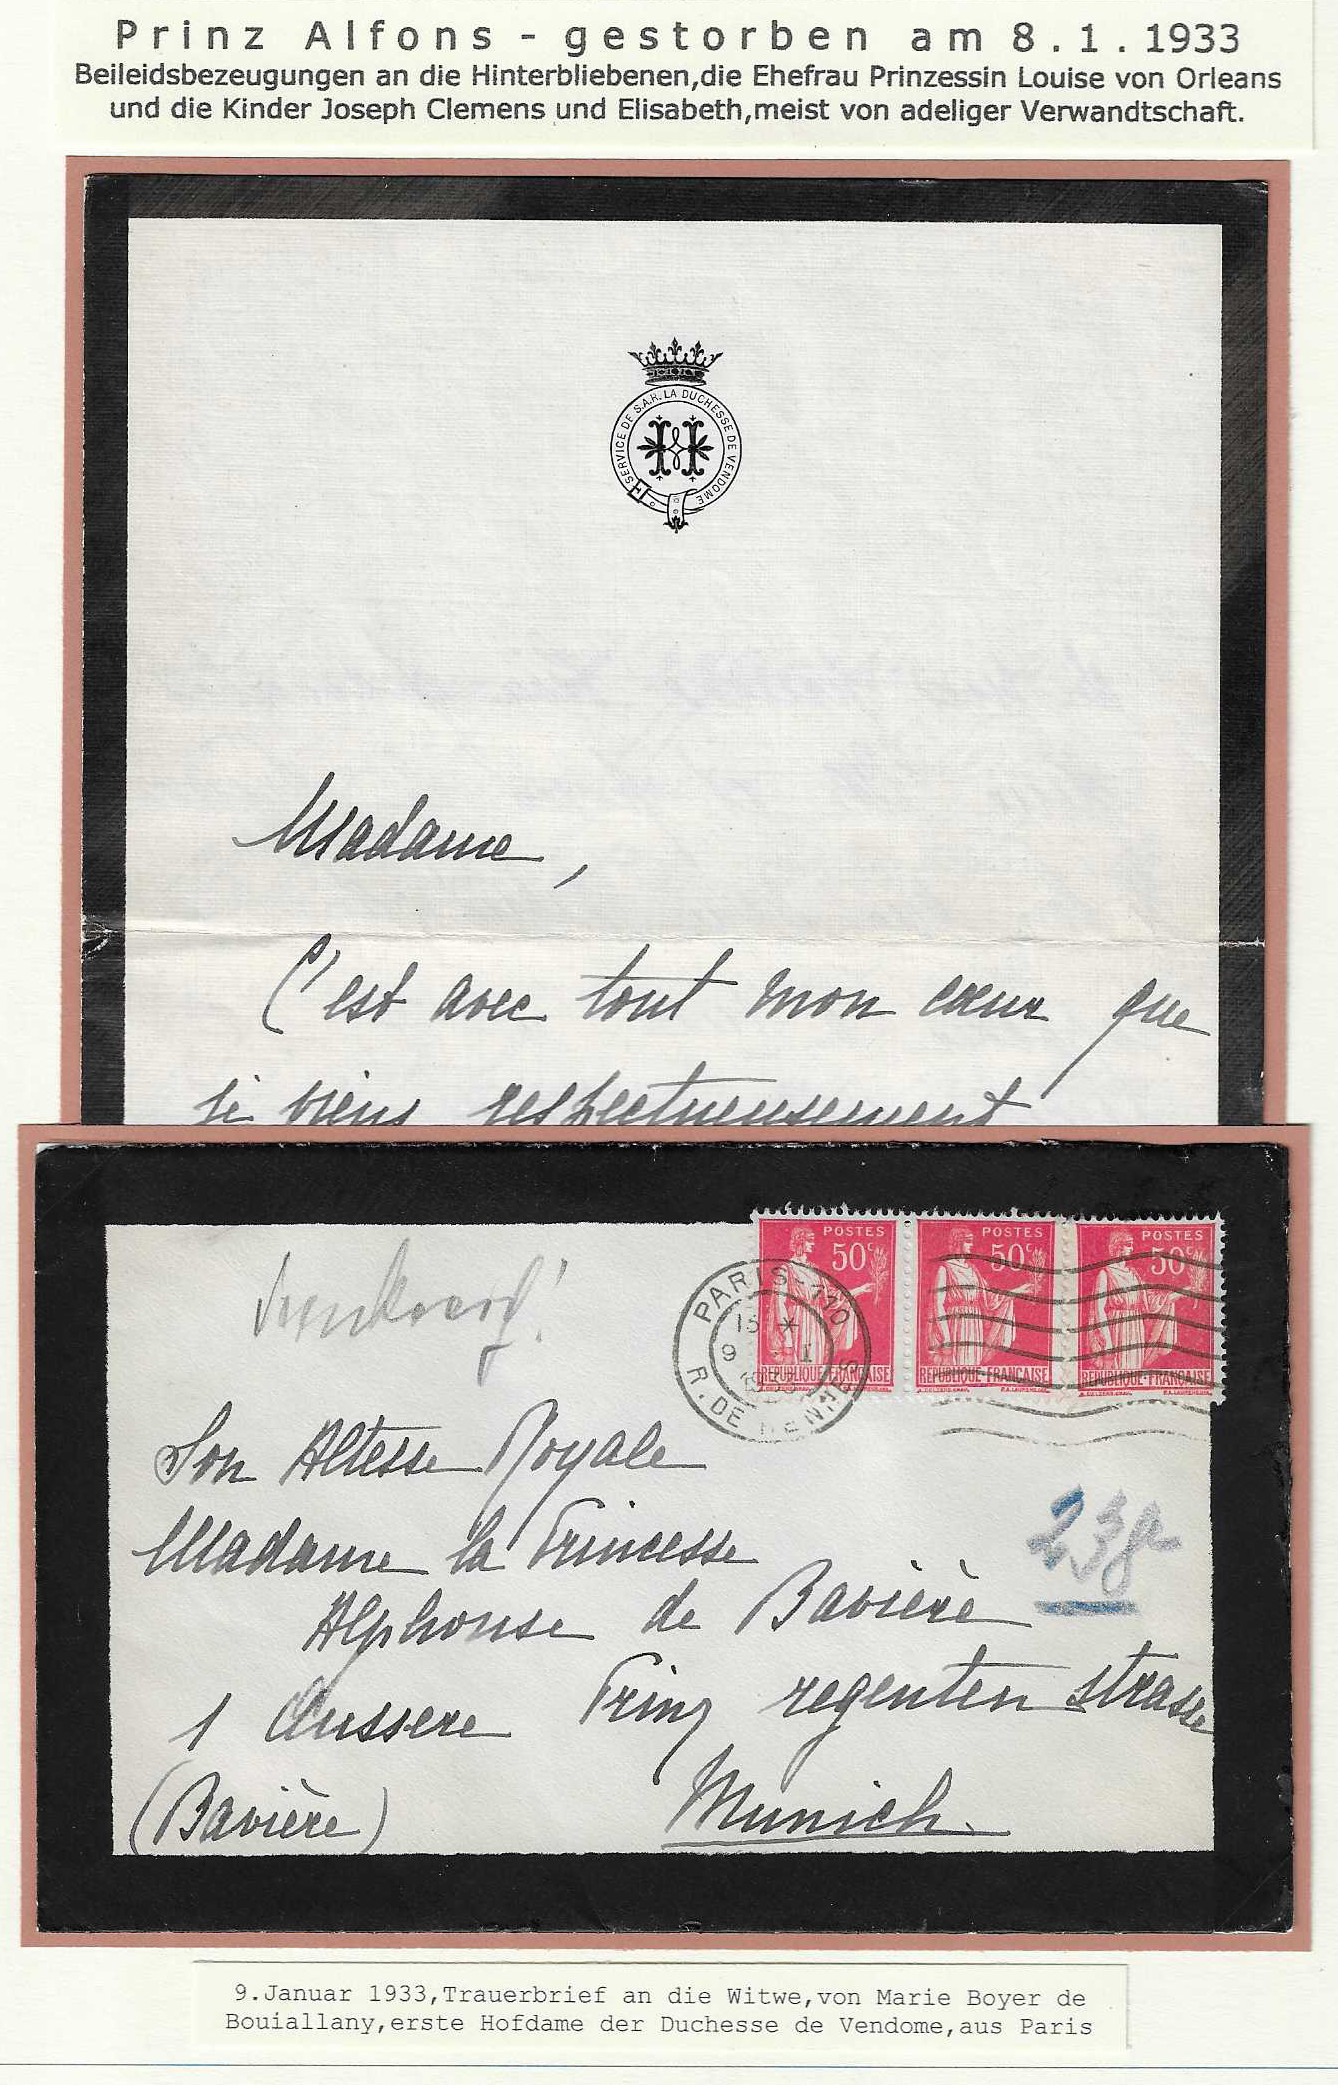 Prinz Alfons - gestorben am 8.1.1933
Beileidsbezeugungen an die Hinterbliebenen,die Ehefrau Prinzessin Louise von Orleans
und die Kinder Joseph Clemens und Elisabeth,meist von adeliger Verwandtschaft.
SERVICE DE S.A.R. LA DUCHESSE DE VENDOME
H
Madame,
C'est avec tout mon cœur que
je viens respectueusement
POSTES POSTES POSTES
50c 50c 50c
REPUBLIQUE-FRANÇAISE REPUBLIQUE-FRANÇAISE REPUBLIQUE-FRANÇAISE
PARIS-110
9 - I
1933
R. DE RENNES
Son Altesse Royale
Madame la Princesse
Alphonse de Bavière
1 Aussere Prinz regenten strasse
(Bavière) Munich.
23g
9.Januar 1933,Trauerbrief an die Witwe,von Marie Boyer de
Bouiallany,erste Hofdame der Duchesse de Vendome,aus Paris